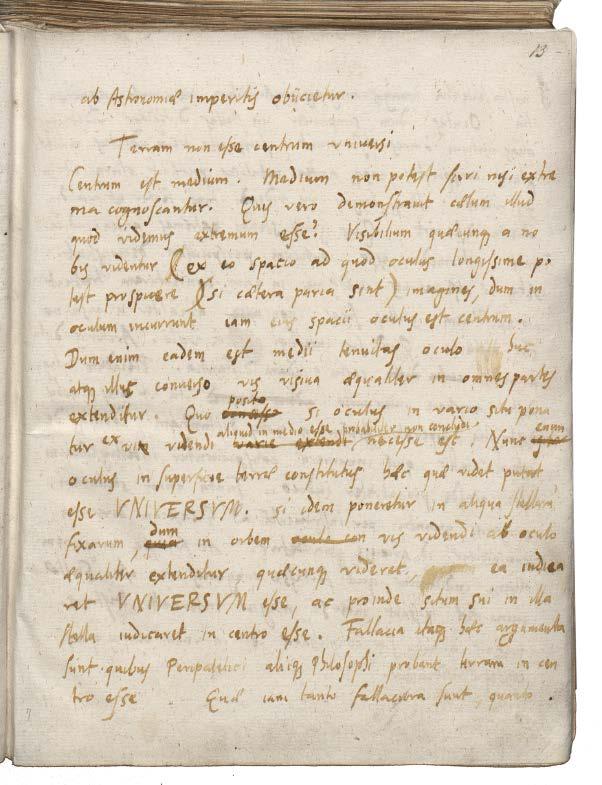 13
ab Astronomiæ imperitis obijcietur.
Terram non esse centrum vniversi
Centrum est medium. Medium non potest sciri nisi extre
ma cognoscantur. Quis vero demonstravit cælum illud
quod videmus extremum esse? Visibilium quæcunq a no
bis videntur (ex eo spacio ad quod oculus longissime po
test prospicere (si cætera paria sint) imagines, dum in
oculum incurrunt iam eius spacii oculus est centrum.
Dum enim eadem est medii tenuitas oculo huc
atq illuc converso vis visiva æqualiter in omnes partes
extenditur. Quo posito si oculus in vario situ pona
tur ex videndi aliquid in medio esse, probabiliter non concludi necesse est. Nunc enim
oculus in superficie terræ constitutus hæc quæ videt putat
esse VNIVERSVM. si idem poneretur in aliqua stellarum
fixarum, dum in orbem vis videndi ab oculo
æqualiter extenditur, quæcunq videret, ea iudica
ret VNIVERSVM esse, ac proinde situm sui in illa
stella iudicaret in centro esse. Fallacia itaq hæc argumenta
sunt quibus Peripatetici aliiq Philosophi probant terram in cen
tro esse Quæ iam tanto fallaciora sunt, quando